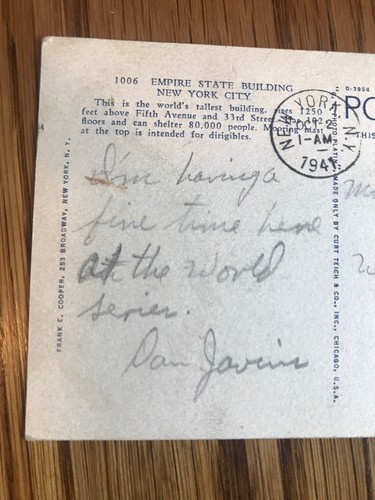 1006 EMPIRE STATE BUILDING
NEW YORK CITY
This is the world's tallest building, rises 1250
feet above Fifth Avenue and 33rd Street, 102
floors and can shelter 80,000 people. Mooring mast
at the top is intended for dirigibles.
O-3954
PO
THIS
NEW YORK, N.Y.
OCT 2
1-AM
1941
I'm having a
fine time here
at the World
series.
Dan
FRANK E. COOPER, 253 BROADWAY, NEW YORK, N. Y.
MADE ONLY BY CURT TEICH & CO., INC., CHICAGO, U.S.A.